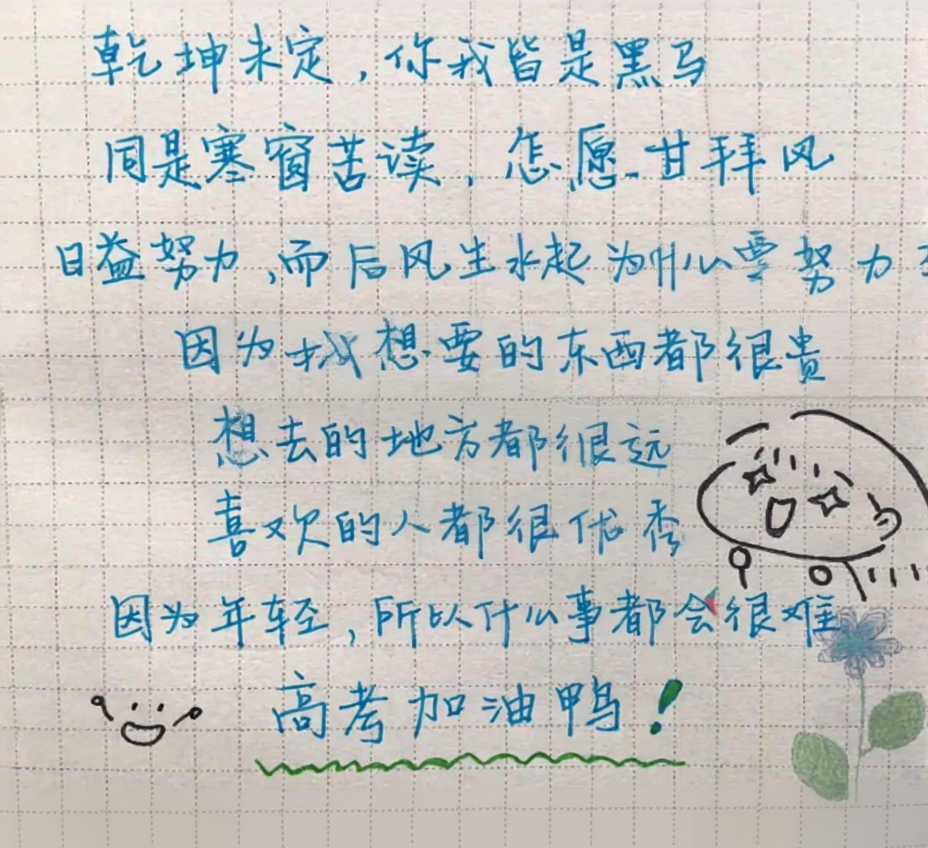 乾坤未定，你我皆是黑马
同是寒窗苦读，怎愿甘拜风
日益努力，而后风生水起为什么要努力
因为我想要的东西都很贵
想去的地方都很远
喜欢的人都很优秀
因为年轻，所以什么事都会很难
高考加油鸭！